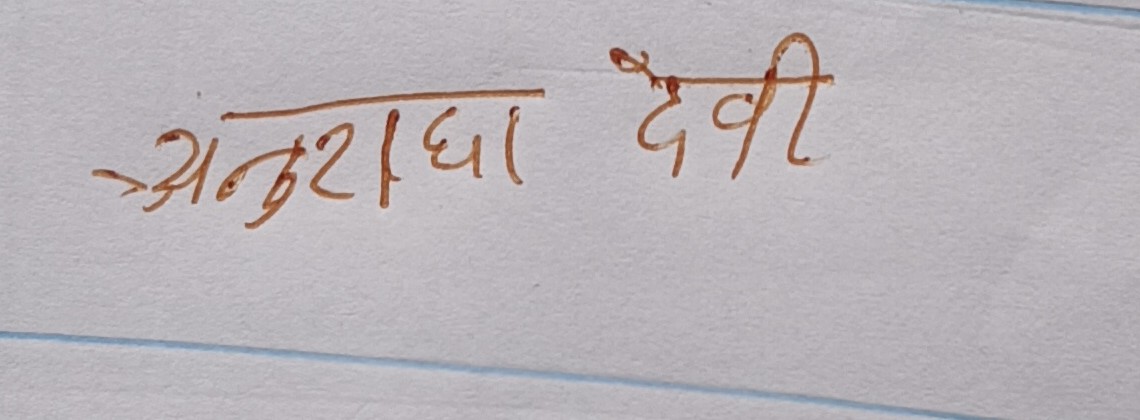 अनुराधा देवी